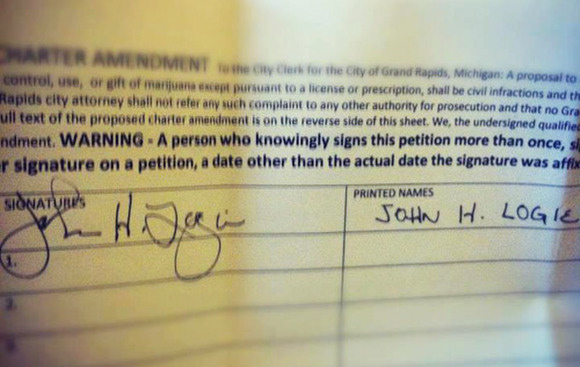 CHARTER AMENDMENT To the City Clerk for the City of Grand Rapids, Michigan: A proposal to
control, use, or gift of marijuana except pursuant to a license or prescription, shall be civil infractions and th
Rapids city attorney shall not refer any such complaint to any other authority for prosecution and that no Gra
ull text of the proposed charter amendment is on the reverse side of this sheet. We, the undersigned qualifie
ndment. WARNING - A person who knowingly signs this petition more than once, si
r signature on a petition, a date other than the actual date the signature was affix
SIGNATURES
PRINTED NAMES
John H. Logie
JOHN H. LOGIE
1.
2.
3.